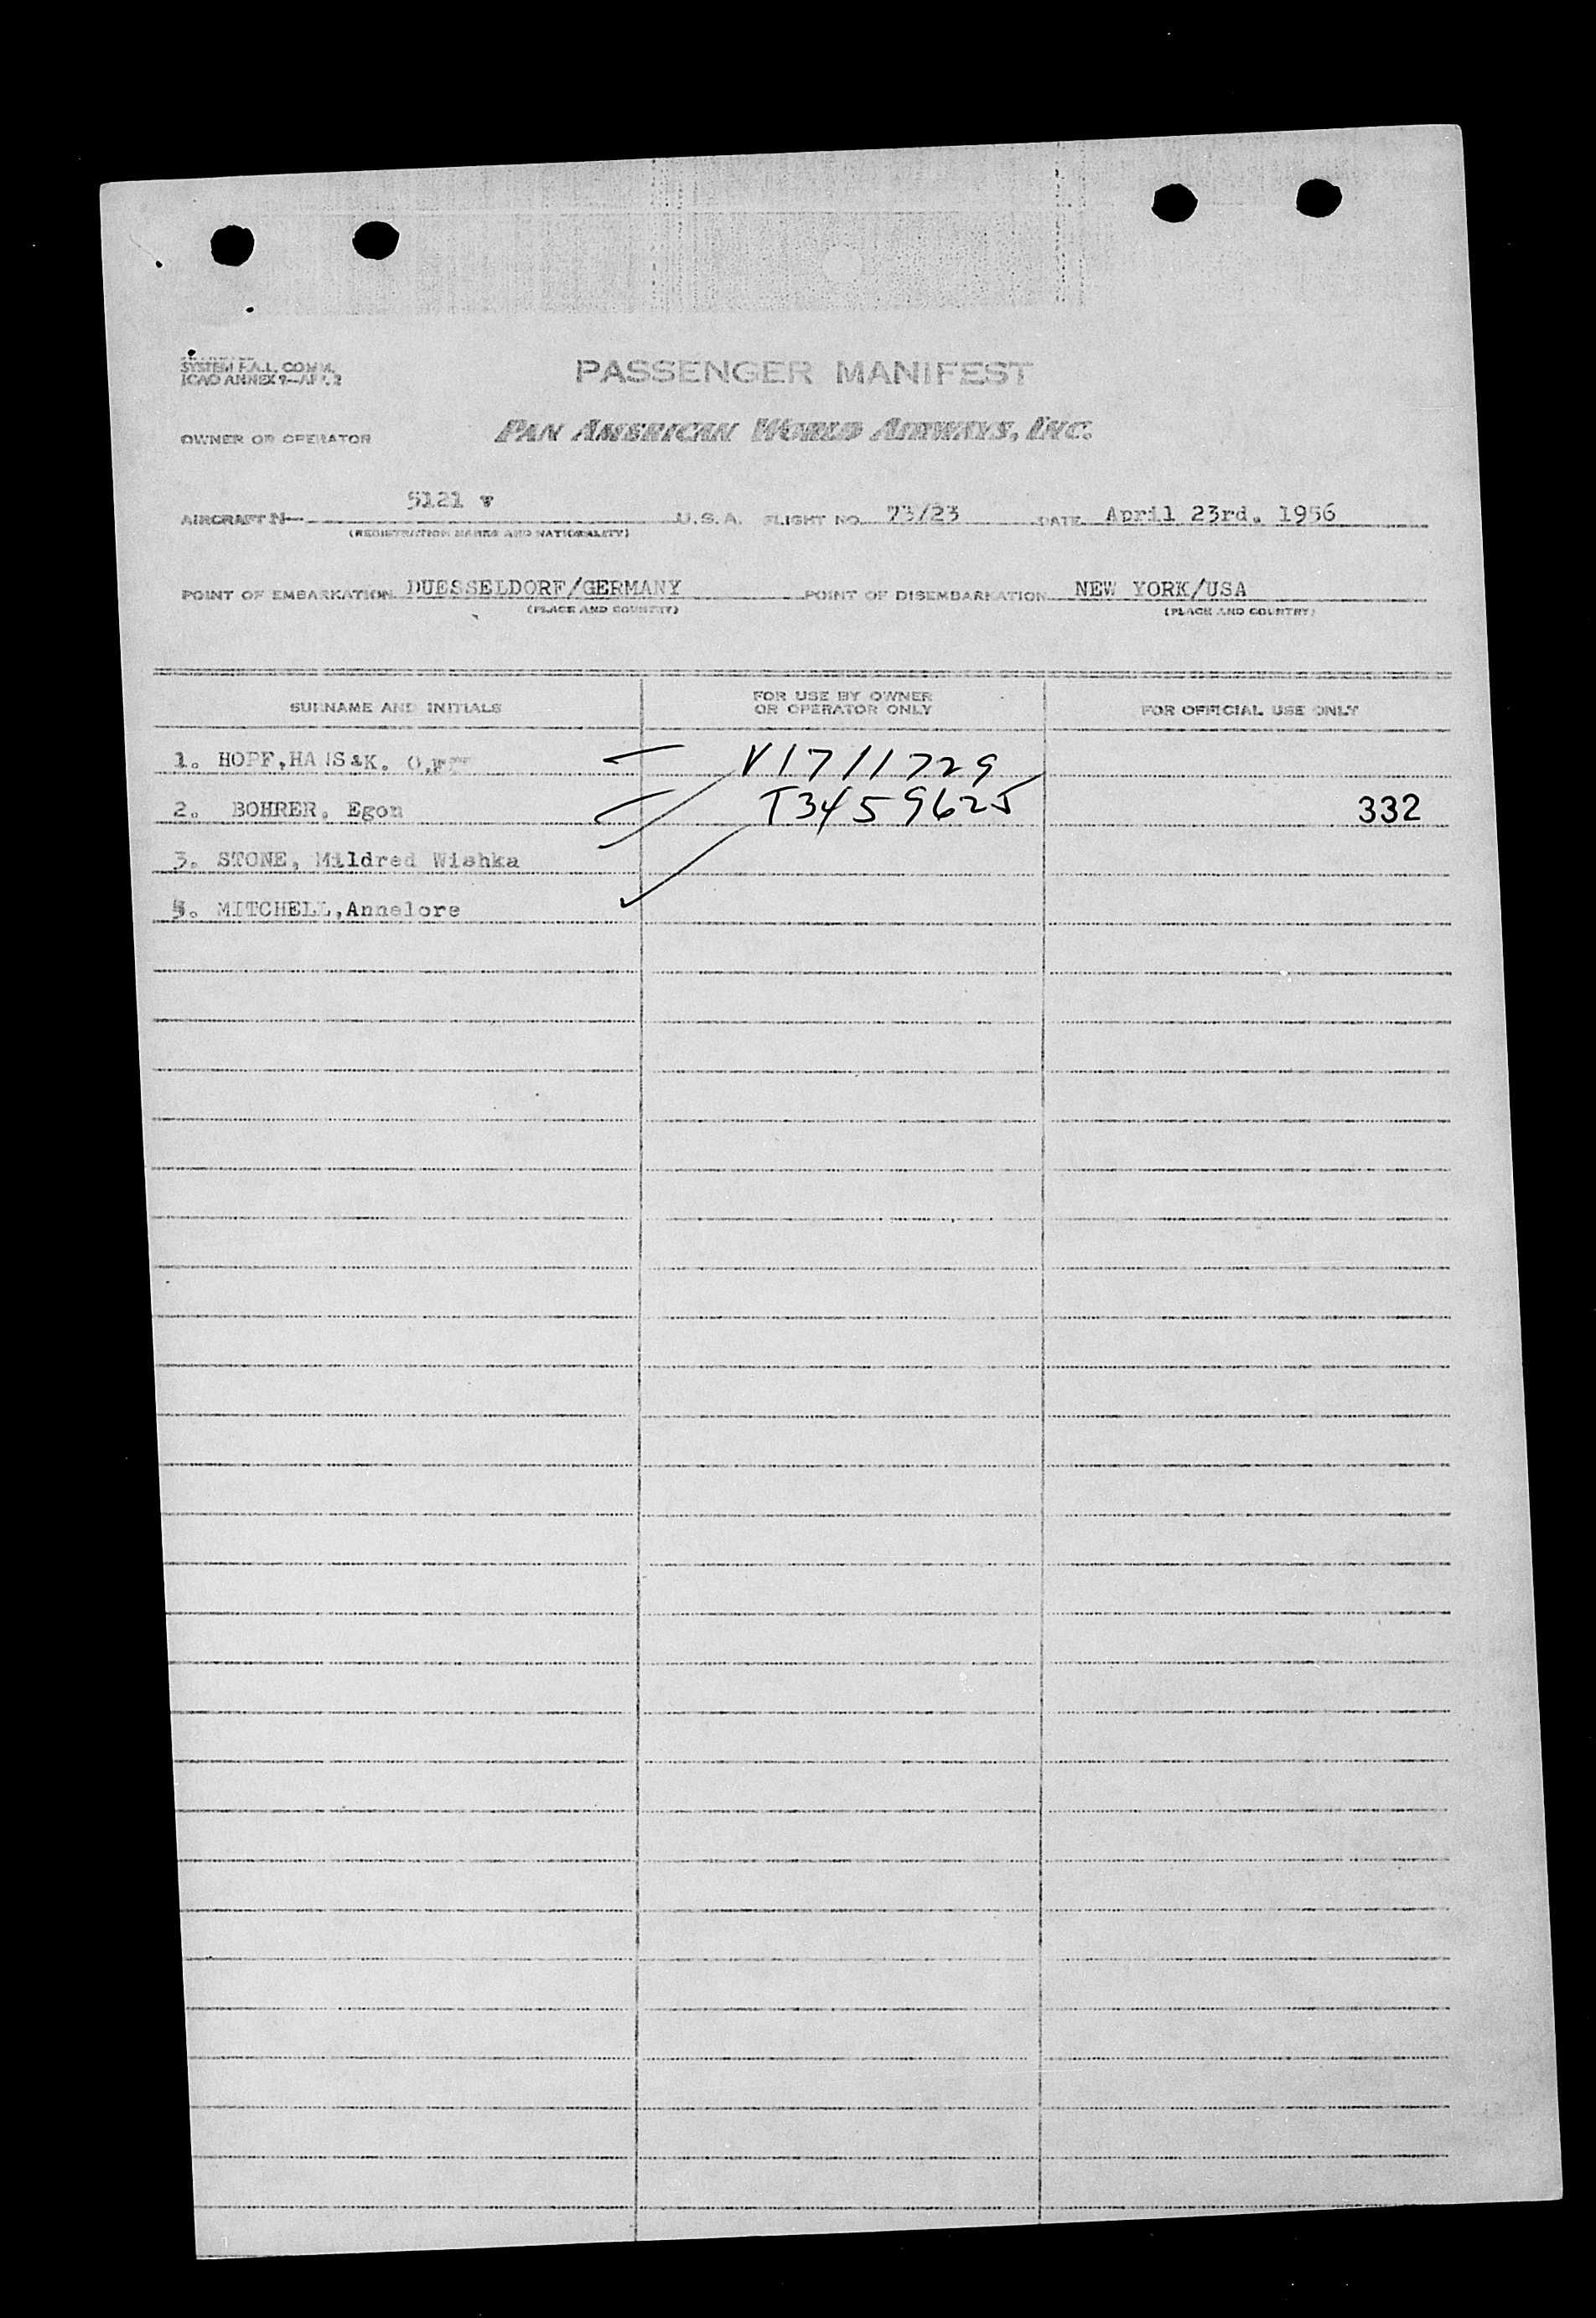 SYSTEM F.A.L. COMM.
ICAO ANNEX 9—APP. 2
PASSENGER MANIFEST
OWNER OR OPERATOR
PAN AMERICAN WORLD AIRWAYS, INC.
AIRCRAFT N— 5121 V U.S.A. FLIGHT NO. 73/23 DATE April 23rd. 1956
(REGISTRATION MARKS AND NATIONALITY)
POINT OF EMBARKATION DUESSELDORF/GERMANY POINT OF DISEMBARKATION NEW YORK/USA
(PLACE AND COUNTRY) (PLACE AND COUNTRY)
SURNAME AND INITIALS FOR USE BY OWNER OR OPERATOR ONLY FOR OFFICIAL USE ONLY
1. HOPF,HANS K. V1711729
2. BOHRER, Egon T3459625 332
3. STONE, Mildred Wishka
MITCHELL,Annelore